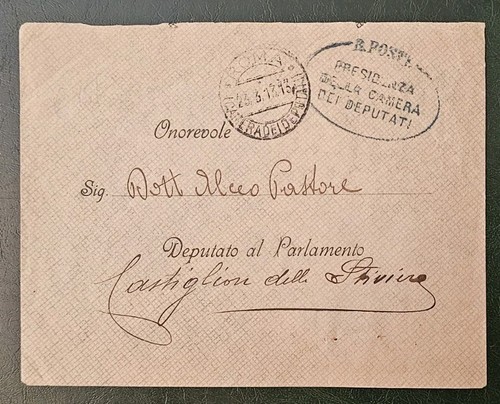 ROMA
23.3.12.15
CAMERA DEI DEPUTATI
R. POSTE
PRESIDENZA
DELLA CAMERA
DEI DEPUTATI
Onorevole
Sig. Dott Alceo Pastore
Deputato al Parlamento
Castiglion delle Stiviere